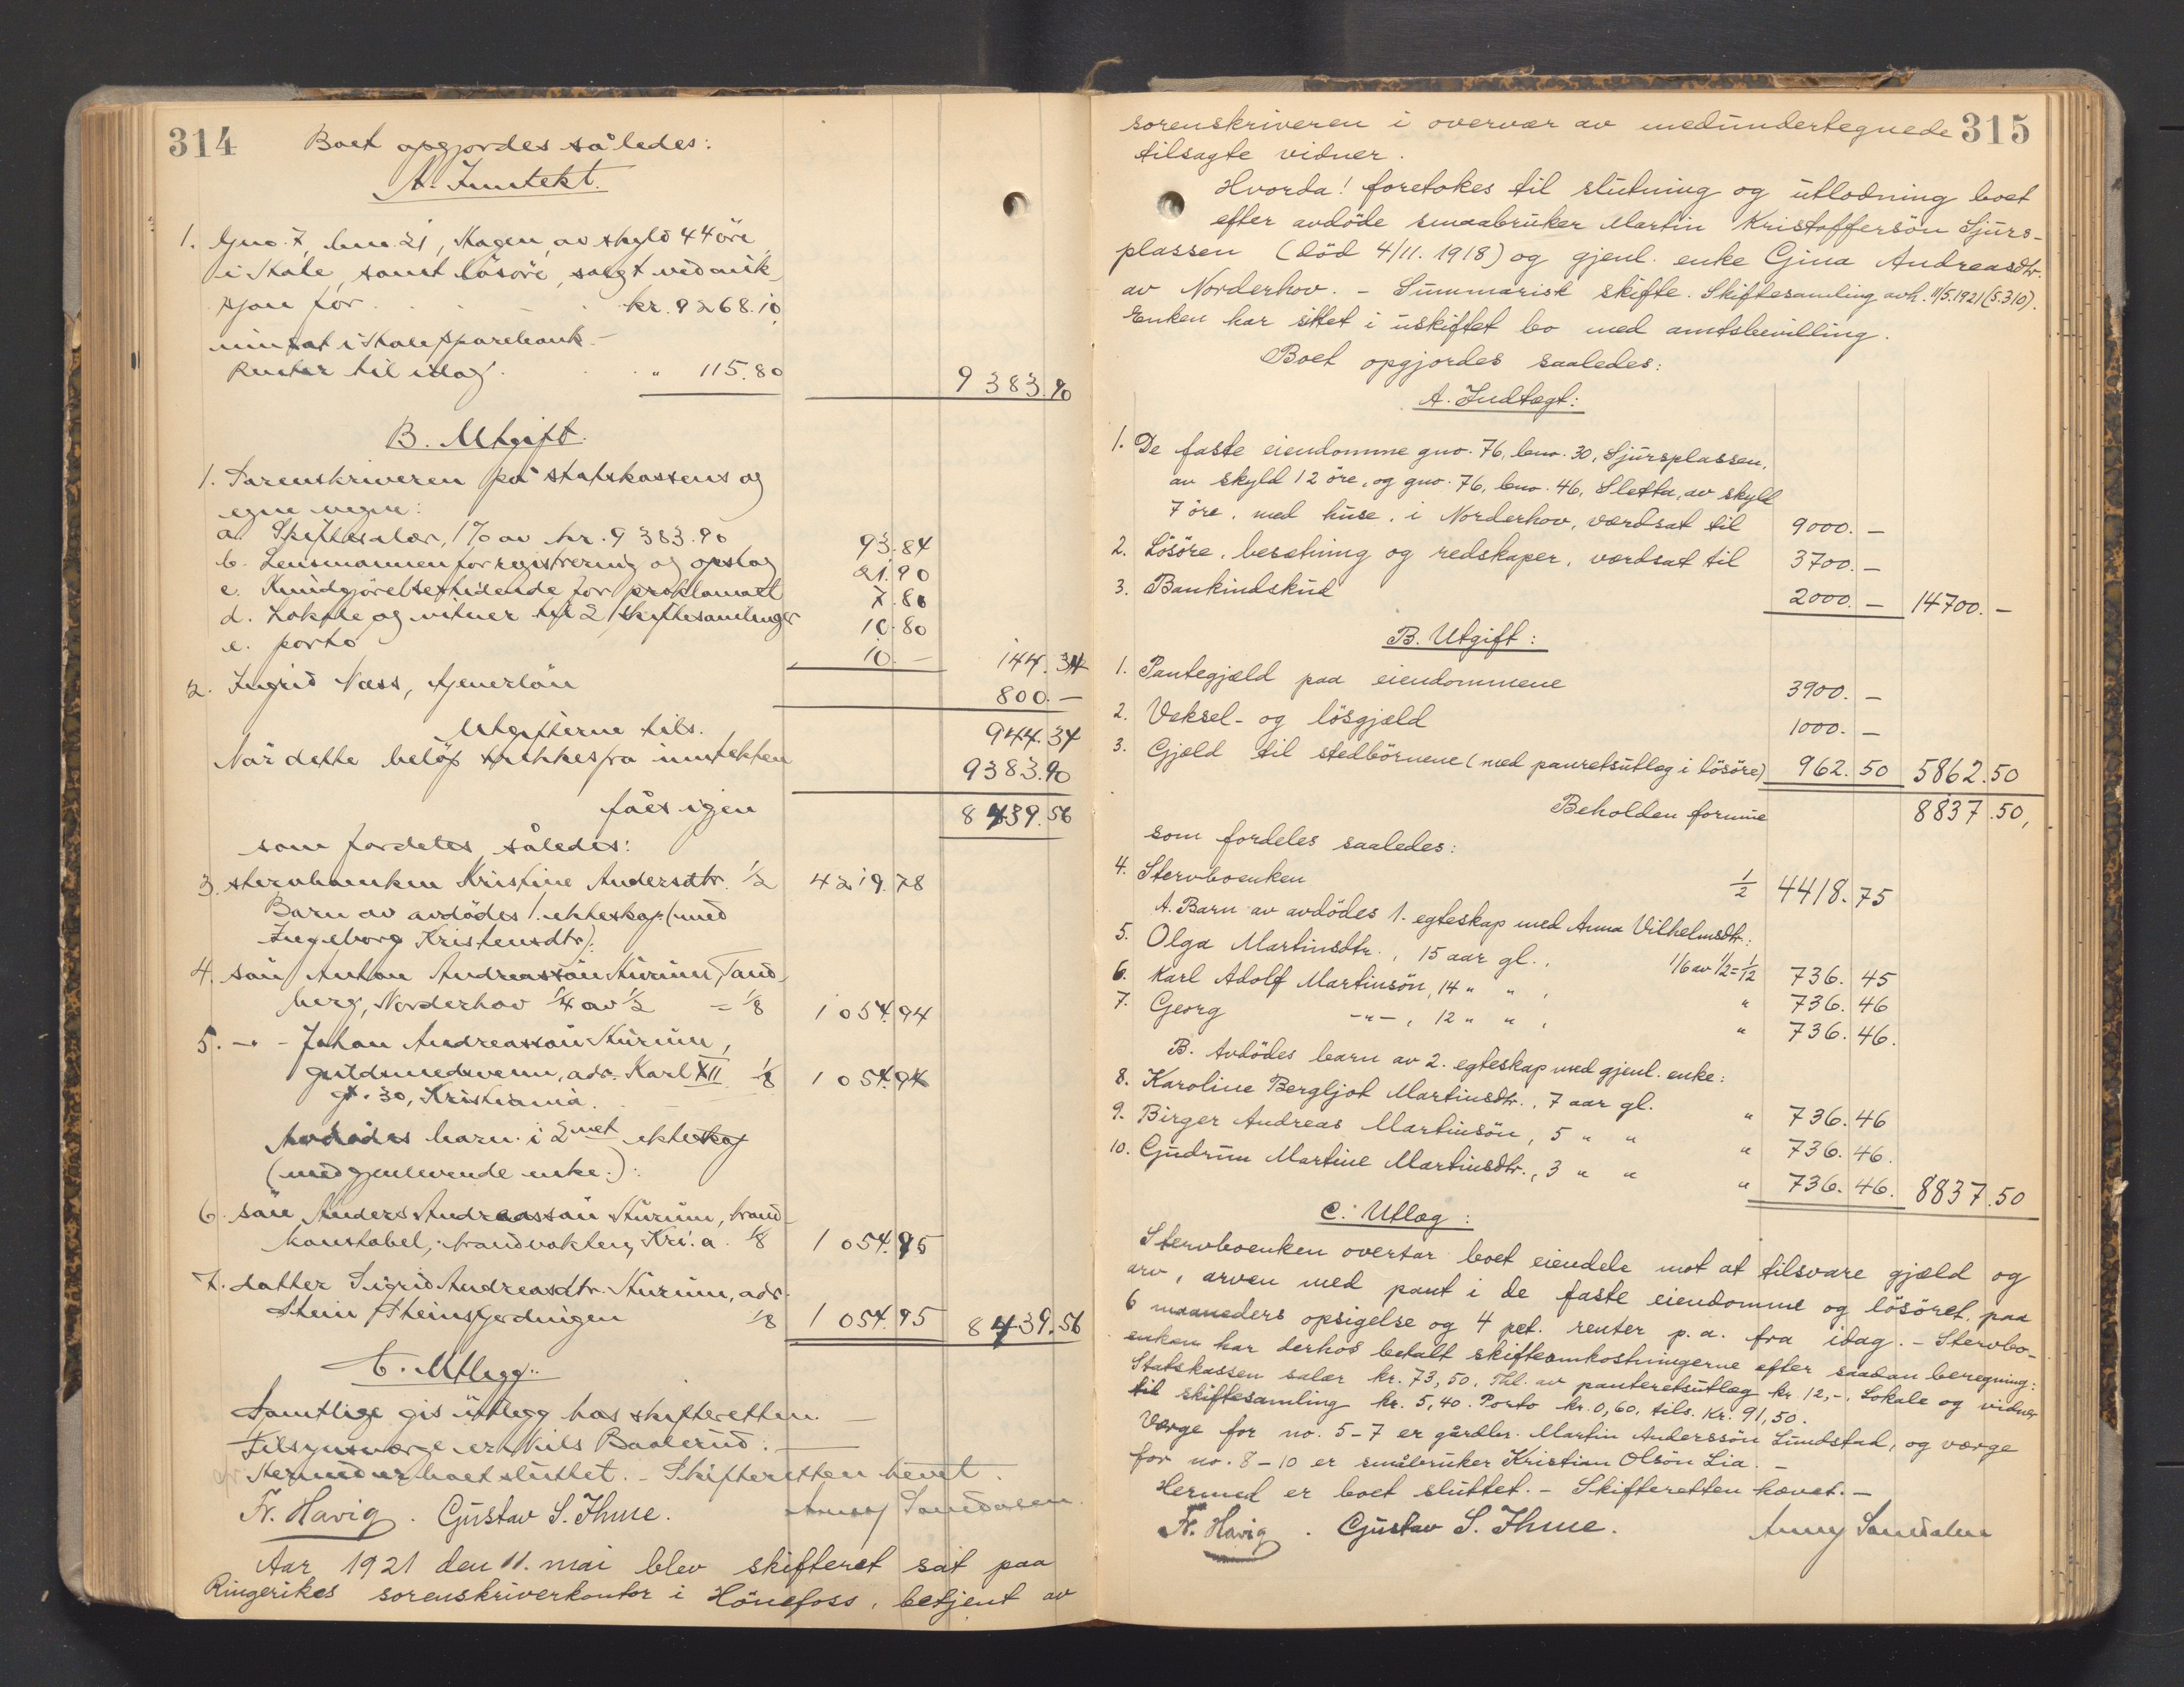 314
Boet opgjordes således:
A. Inntekt.
1. Gno. 7, bno. 21, Hagen, av skyld 44 öre
i Hole, samt lösöre, solgt ved auk-
sjon for . . . kr. 9268.10
innsat i Hole sparebank -
Renter til idag . . . " 115.80 9383.90
B. Utgift.
1. Sorenskriveren på statskassens og
egne vegne:
a. Skiftesalær, 1% av kr. 9383.90 93.84
b. Lensmannen for registrering og opslag 21.90
c. Kundgjörelsestidende for proklamaet 7.80
d. Lokale og vitner til 2 skiftesamlinger 10.80
e. porto 10.- 144.34
2. Ingrid Næss, tjenerlön 800.-
Utgifterne tils. 944.34
Når dette belöp trekkes fra inntekten 9383.90
fåes igjen 8439.56
som fordeles således:
3. stervboenken Kristine Andersdtr. 1/2 4219.78
Barn av avdödes 1. ekteskap (med
Ingeborg Kristensdtr):
4. sön Anton Andreassön Hurum, Tand-
berg, Norderhov 1/4 av 1/2 = 1/8 1054.94
5. -"- Johan Andreassön Hurum,
guldsmedsvenn, adr. Karl XII 1/8 1054.94
gt. 30, Kristiania.
Avdödes barn i 2net ekteskap
(med gjenlevende enke.):
6. sön Anders Andreassön Hurum, brand-
konstabel, brandvakten, Kr.a. 1/8 1054.95
7. datter Sigrid Andreasdtr. Hurum, adr.
Stein Steinsfjerdingen 1/8 1054.95 8439.56
C. Utlegg:
Samtlige gis utlegg hos skifteretten. -
Tilsynsverge er Nils Baalerud. -
Hermed er boet sluttet. - Skifteretten hevet.
Fr. Havig. Gustav S. Thue. Anny Sandalen.
Aar 1921 den 11. mai blev skifteret sat paa
Ringerikes sorenskriverkontor i Hönefoss, betjent av
315
sorenskriveren i overvær av medundertegnede
tilsagte vidner.
Hvorda! foretokes til slutning og utlodning boet
efter avdöde smaabruker Martin Kristoffersön Sjurs-
plassen (död 4/11. 1918) og gjenl. enke Gina Andreasdtr.
av Norderhov. - Summarisk skifte. Skiftesamling avh. 11/5.1921 (S.310).
Enken har sittet i uskiftet bo med amtsbevilling.
Boet opgjordes saaledes:
A. Indtægt:
1. De faste eiendomme gno. 76, bno. 30, Sjursplassen,
av skyld 12 öre, og gno. 76, bno. 46, Sletta, av skyld
7 öre, med huse, i Norderhov, værdsat til 9000.-
2. Lösöre, besetning og redskaper, værdsat til 3700.-
3. Bankindskud 2000.- 14700.-
B. Utgift:
1. Pantegjæld paa eiendommene 3900.-
2. Veksel- og lösgjæld 1000.-
3. Gjæld til stedbörnene (med panretsutlæg i lösöre) 962.50 5862.50
Beholden formue 8837.50,
som fordeles saaledes:
4. Stervboenken 1/2 4418.75
A. Barn av avdödes 1. egteskap med Anna Vilhelmsdtr.:
5. Olga Martinsdtr., 15 aar gl., 1/6 av 1/2 = 1/12 736.45
6. Karl Adolf Martinsön, 14 " " , " 736.46
7. Georg -"-, 12 " " , " 736.46.
B. Avdödes barn av 2. egteskap med gjenl. enke:
8. Karoline Bergljot Martinsdtr., 7 aar gl. " 736.46
9. Birger Andreas Martinsön, 5 " " " 736.46.
10. Gudrun Martine Martinsdtr., 3 " " " 736.46. 8837.50
C. Utlæg:
Stervboenken overtar boet eiendele mot at tilsvare gjæld og
arv, arven med pant i de faste eiendomme og lösöret, paa
6 maaneders opsigelse og 4 pct. renter p.a. fra idag. - Stervbo-
enken har derhos betalt skifteomkostningerne efter saadan beregning:
Statskassen salær kr. 73,50, Thl. av panteretsutlæg kr. 12,-, Lokale og vidner
til skiftesamling kr. 5,40. Porto kr. 0,60, tils. Kr. 91,50.
Værge for no. 5-7 er gårdbr. Martin Anderssön Lundstad, og værge
for no. 8-10 er småbruker Kristian Olsön Lia. -
Hermed er boet sluttet. - Skifteretten hævet. -
Fr. Havig. Gustav S. Thue. Anny Sandalen